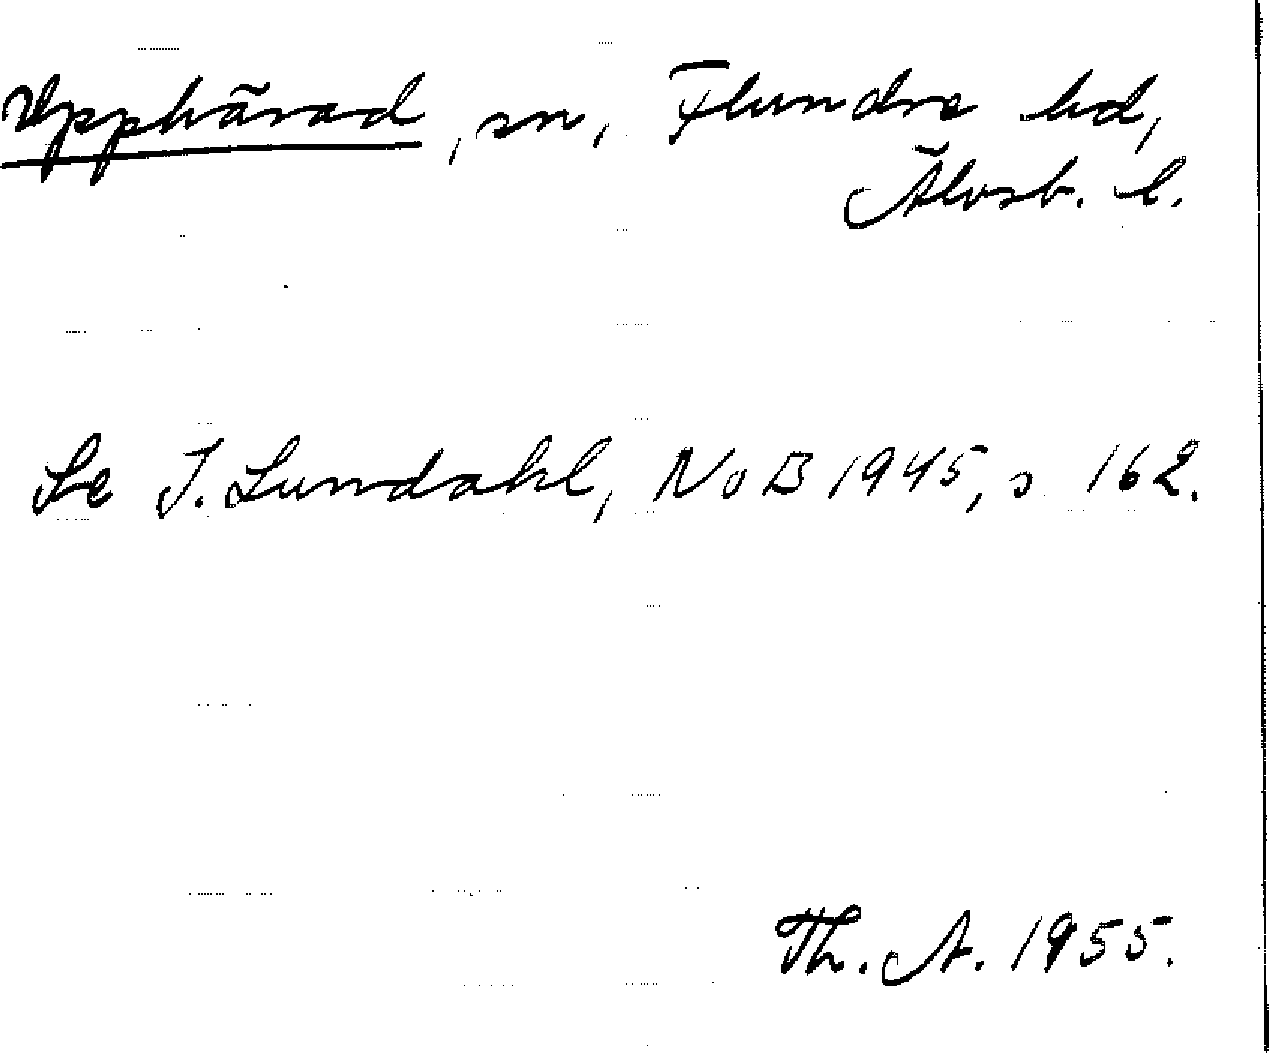 Upphärad, sn, Flundre hd,
Älvsb. l.
Se I. Lundahl, NoB 1945, s 162.
Th. A. 1955.